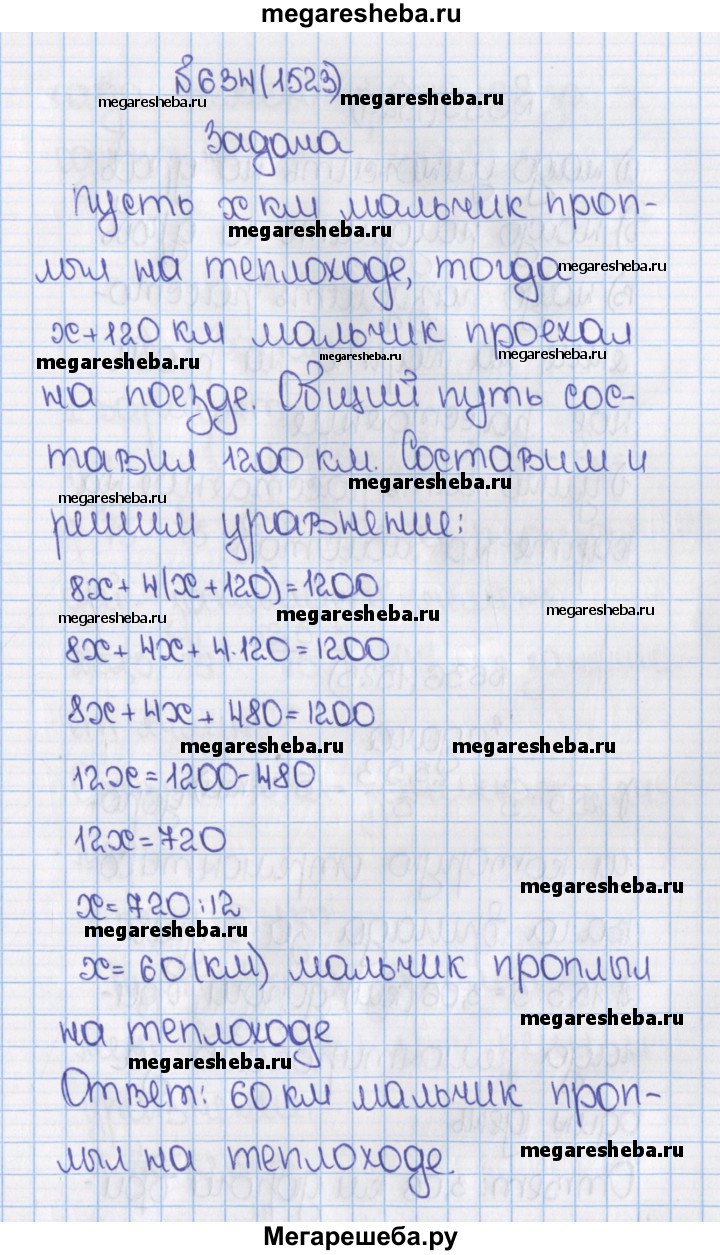 megaresheba.ru
№634(1523)
megaresheba.ru megaresheba.ru
Задача
Пусть x км мальчик проп-
megaresheba.ru
лыл на теплоходе, тогда
megaresheba.ru
x+120 км мальчик проехал
megaresheba.ru megaresheba.ru megaresheba.ru
на поезде. Общий путь сос-
тавил 1200 км. Составим и
megaresheba.ru
megaresheba.ru
решим уравнение:
8x+4(x+120)=1200
megaresheba.ru megaresheba.ru megaresheba.ru
8x+4x+4·120=1200
8x+4x+480=1200
megaresheba.ru megaresheba.ru
12x=1200-480
12x=720
megaresheba.ru
x=720:12
megaresheba.ru
x=60(км) мальчик проплыл
megaresheba.ru
на теплоходе
megaresheba.ru
Ответ: 60 км мальчик проп-
megaresheba.ru
лыл на теплоходе.
Мегарешеба.ру